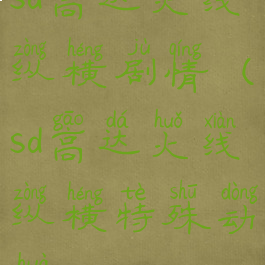 sd高达火线
zòng héng jù qíng
纵横剧情（
gāo dá huǒ xiàn
sd高达火线
zòng héng tè shū dòng
纵横特殊动